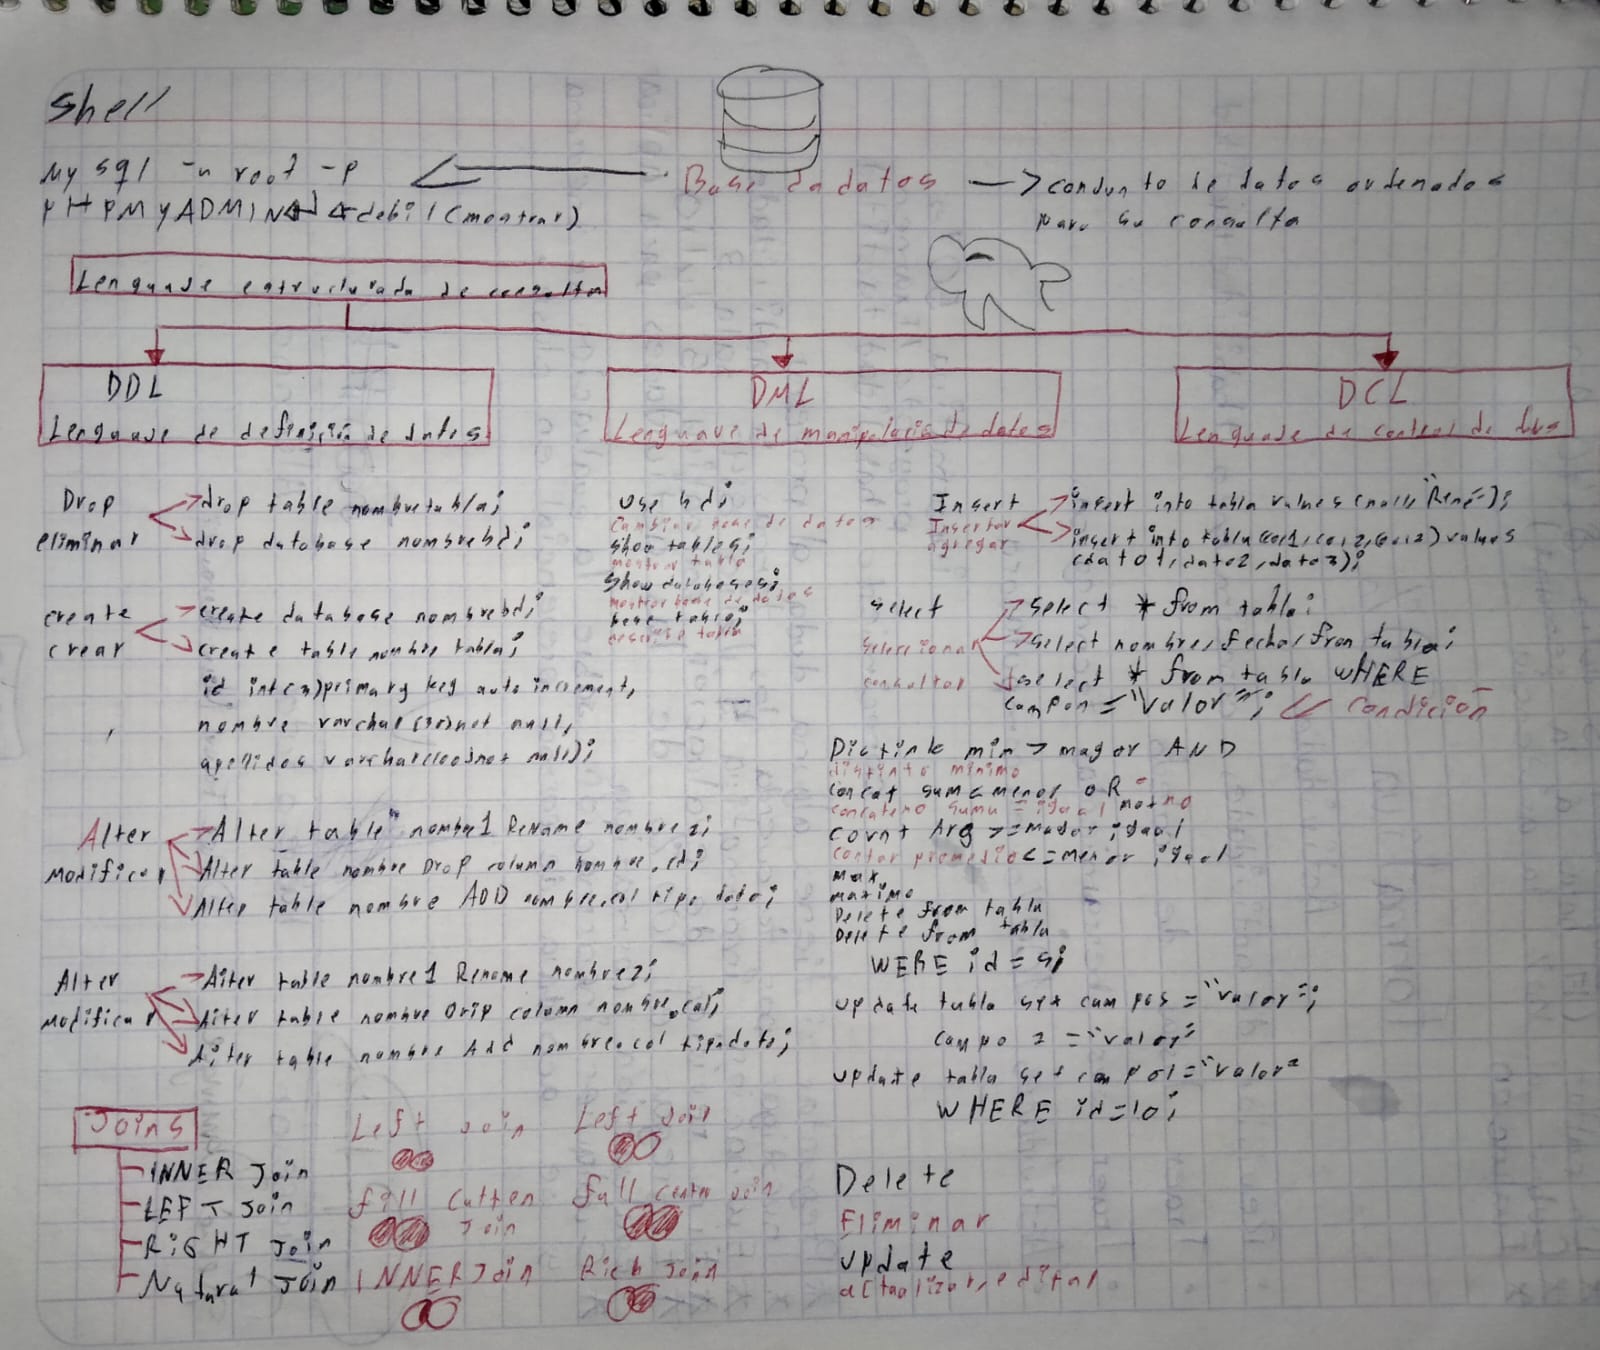 Shell
My sql -u root -p
Base da datos
condunto de datos ordenados
para su consulta
PHPMyADMIN debil (mostrar)
Lenguaje estructurada de consultas
DDL
Lenguaje de definición de datos
DML
Lenguave de manipulació de datos
DCL
Lenguaje de control de datos
Drop
eliminar
drop table nombretabla;
drop database nombrebd;
create
crear
create database nombrebd;
create table nombre tabla;
id int(3)primary key auto increment,
nombre varchar(30)not null,
apellidos varchar(100)not null);
Alter
Modificar
Alter table nombre1 Rename nombre 2;
Alter table nombre Drop column nombre.
Alter table nombre ADD nombre.col tipo dato;
Alter
Modificar
Alter table nombre1 Rename nombre2;
Alter table nombre Drip column nombre.col;
Alter table nombre Add nombre.col tipodato;
use bd;
Cambiar base de datos
show tables;
mostrar tabla
show databases;
mostrar base de datos
table;
describe tabla
Insert
Insertar
agregar
insert into tabla values (null, "René");
insert into tabla values
(dato1, dato2, dato3);
select
selecciona
consultar
select * from tabla;
select nombre, fecha, from tabla;
select * from tabla WHERE
campon = "valor"; condición
Dictink min > mayor AND
distinto minimo
concat sum < menor OR
concateno suma = igual not no
count Arg >= mador igual
contar promedio <= menor igual
max
maximo
Delete from tabla
Delete from tabla
WERE id = 5;
update tabla set campos = "valor";
campo 2 = "valor"
update tabla set campo1 = "valor"
WHERE id=10;
Delete
Eliminar
update
actualizar, editar
Joins
INNER Join
LEFT Join
RiGHT Join
Natural Join
Left Join
Left Join
full cutten
Join
full centro join
INNER Join
Rich Join